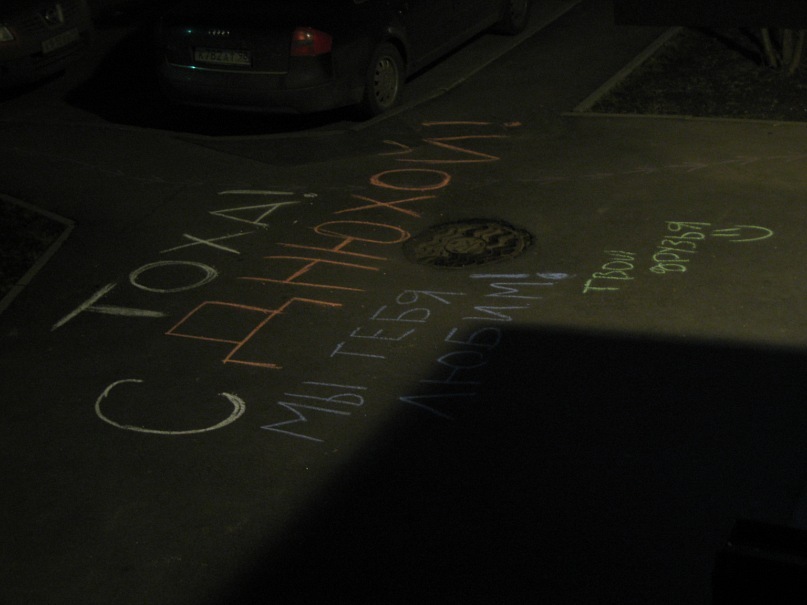 ТОХА!
С ДНЮХОЙ!
МЫ ТЕБЯ
ЛЮБИМ!
ТВОИ
ДРУЗЬЯ =)